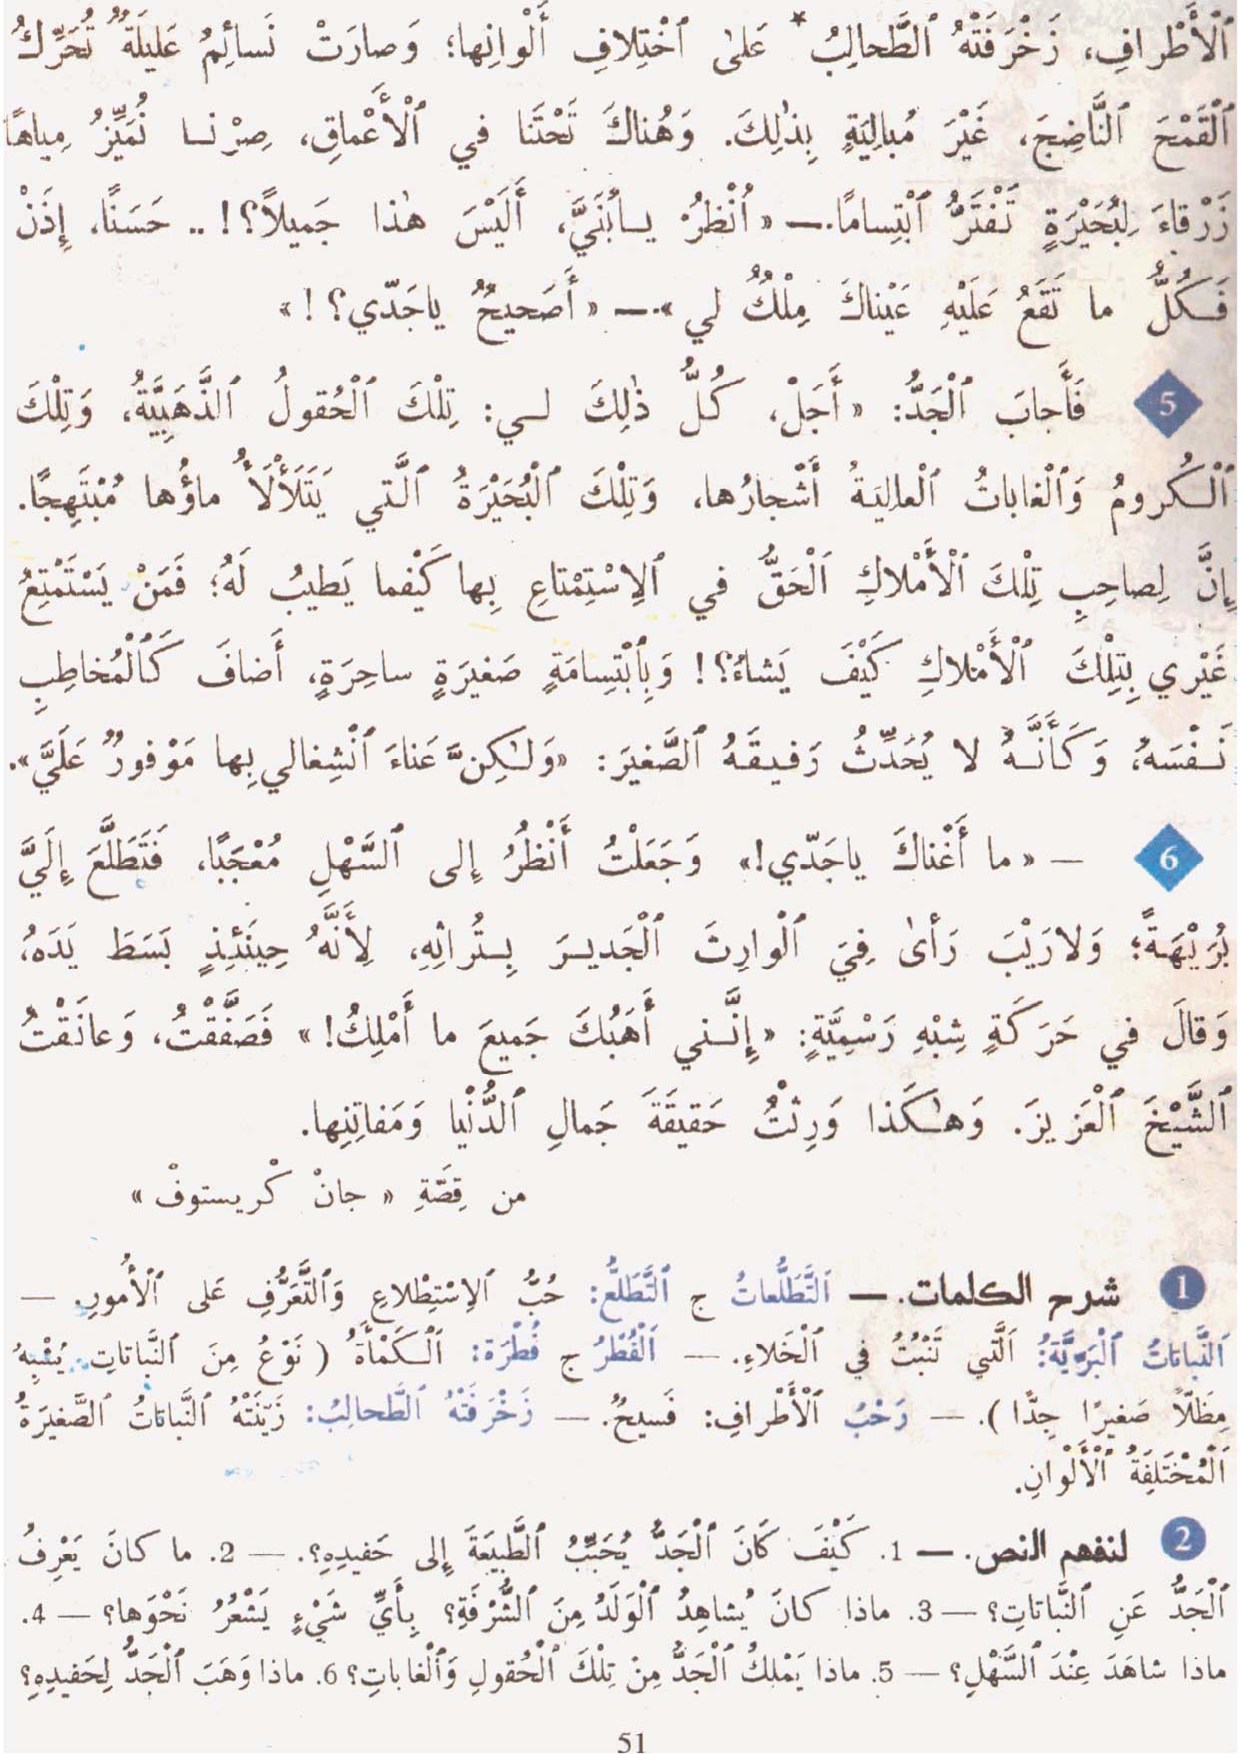 ٱلْأَطْرافِ، زَخْرَفَتْهُ ٱلطَّحالِبُ * عَلىٰ ٱخْتِلافِ أَلْوانِها؛ وَصارَتْ نَسائِمُ عَليلَةٌ تُحَرِّكُ
ٱلْقَمْحَ ٱلنَّاضِجَ، غَيْرَ مُبالِيَةٍ بِذٰلِكَ. وَهُناكَ تَحْتَنا في ٱلْأَعْماقِ، صِرْنـا نُمَيِّزُ مِياهًا
زَرْقاءَ لِبُحَيْرَةٍ تَفْتَرُّ ٱبْتِسامًا. — « اُنْظُرْ يـابُنَيَّ، أَلَيْسَ هٰذا جَميلاً؟! .. حَسَنًا، إِذَنْ
فَـكُلُّ ما تَقَعُ عَلَيْهِ عَيْناكَ مِلْكٌ لي ». — « أَصَحيحٌ ياجَدّي؟ ! »
5 فَأَجابَ ٱلْجَدُّ: « أَجَلْ، كُلُّ ذٰلِكَ لـي: تِلْكَ ٱلْحُقولُ ٱلذَّهَبِيَّةُ، وَتِلْكَ
ٱلْـكُرومُ وَٱلْغاباتُ ٱلْعالِيَـةُ أَشْجارُها، وَتِلْكَ ٱلْبُحَيْرَةُ ٱلَّتي يَتَلَأْلَأُ ماؤُها مُبْتَهِجًا.
إِنَّ لِصاحِبِ تِلْكَ ٱلْأَمْلاكِ ٱلْحَقَّ في ٱلِاسْتِمْتاعِ بِها كَيْفَما يَطيبُ لَهُ؛ فَمَنْ يَسْتَمْتِعُ
غَيْري بِتِلْكَ ٱلْأَمْلاكِ كَيْفَ يَشاءُ؟! وَبِٱبْتِسامَةٍ صَغيرَةٍ ساحِرَةٍ، أَضافَ كَٱلْمُخاطِبِ
نَـفْسَهُ، وَكَأَنَّـهُ لا يُحَدِّثُ رَفيـقَـهُ ٱلصَّغيرَ: «وَلـٰكِنَّ عَناءَ ٱنْشِغالي بِها مَوْفورٌ عَلَيَّ».
6 — « ما أَغْناكَ ياجَدّي!» وَجَعَلْتُ أَنْظُرُ إِلى ٱلسَّهْلِ مُعْجَبًا، فَتَطَلَّعَ إِلَيَّ
بُرَيْهَـةً؛ وَلارَيْبَ رَأىٰ فِيَ ٱلْوارِثَ ٱلْجَديـرَ بِـتُراثِهِ، لِأَنَّهُ حِينَئِذٍ بَسَطَ يَدَهُ،
وَقالَ في حَرَكَةٍ شِبْهِ رَسْمِيَّةٍ: « إِنَّـني أَهَبُكَ جَميعَ ما أَمْلِكُ! » فَصَفَّقْتُ، وَعانَقْتُ
ٱلشَّيْخَ ٱلْعَزيزَ. وَهـٰكَذا وَرِثْتُ حَقيقَةَ جَمالِ ٱلدُّنْيا وَمَفاتِنِها.
من قِصَّةِ « جانْ كْريستوفْ »
1 شرح الكلمات. — اَلتَّطَلُّعاتُ ج ٱلتَّطَلُّعُ: حُبُّ ٱلِاسْتِطْلاعِ وَٱلتَّعَرُّفِ عَلى ٱلْأُمورِ. —
اَلنَّباتاتُ ٱلْبَرِّيَّةُ: اَلَّتي تَنْبُتُ في ٱلْخَلاءِ. — اَلْفُطْرُ ج فُطْرَة: اَلْـكَمْأَةُ ( نَوْعٌ مِنَ ٱلنَّباتاتِ يُشْبِهُ
مِظَلّاً صَغيرًا جِدًّا ). — رَحْبُ ٱلْأَطْرافِ: فَسيحٌ. — زَخْرَفَتْهُ ٱلطَّحالِبُ: زَيَّنَتْهُ ٱلنَّباتاتُ ٱلصَّغيرَةُ
اَلْمُخْتَلِفَةُ ٱلْأَلْوانِ.
2 لنفهم النص. — 1. كَيْفَ كَانَ ٱلْجَدُّ يُحَبِّبُ ٱلطَّبِيعَةَ إِلى حَفيدِهِ؟. — 2. ما كانَ يَعْرِفُ
ٱلْجَدُّ عَنِ ٱلنَّباتاتِ؟ — 3. ماذا كانَ يُشاهِدُ ٱلْوَلَدُ مِنَ ٱلشُّرْفَةِ؟ بِأَيِّ شَيْءٍ يَشْعُرُ نَحْوَها؟ — 4.
ماذا شاهَدَ عِنْدَ ٱلسَّهْلِ؟ — 5. ماذا يَمْلِكُ ٱلْجَدُّ مِنْ تِلْكَ ٱلْحُقولِ وَٱلْغاباتِ؟ 6. ماذا وَهَبَ ٱلْجَدُّ لِحَفيدِهِ؟
51